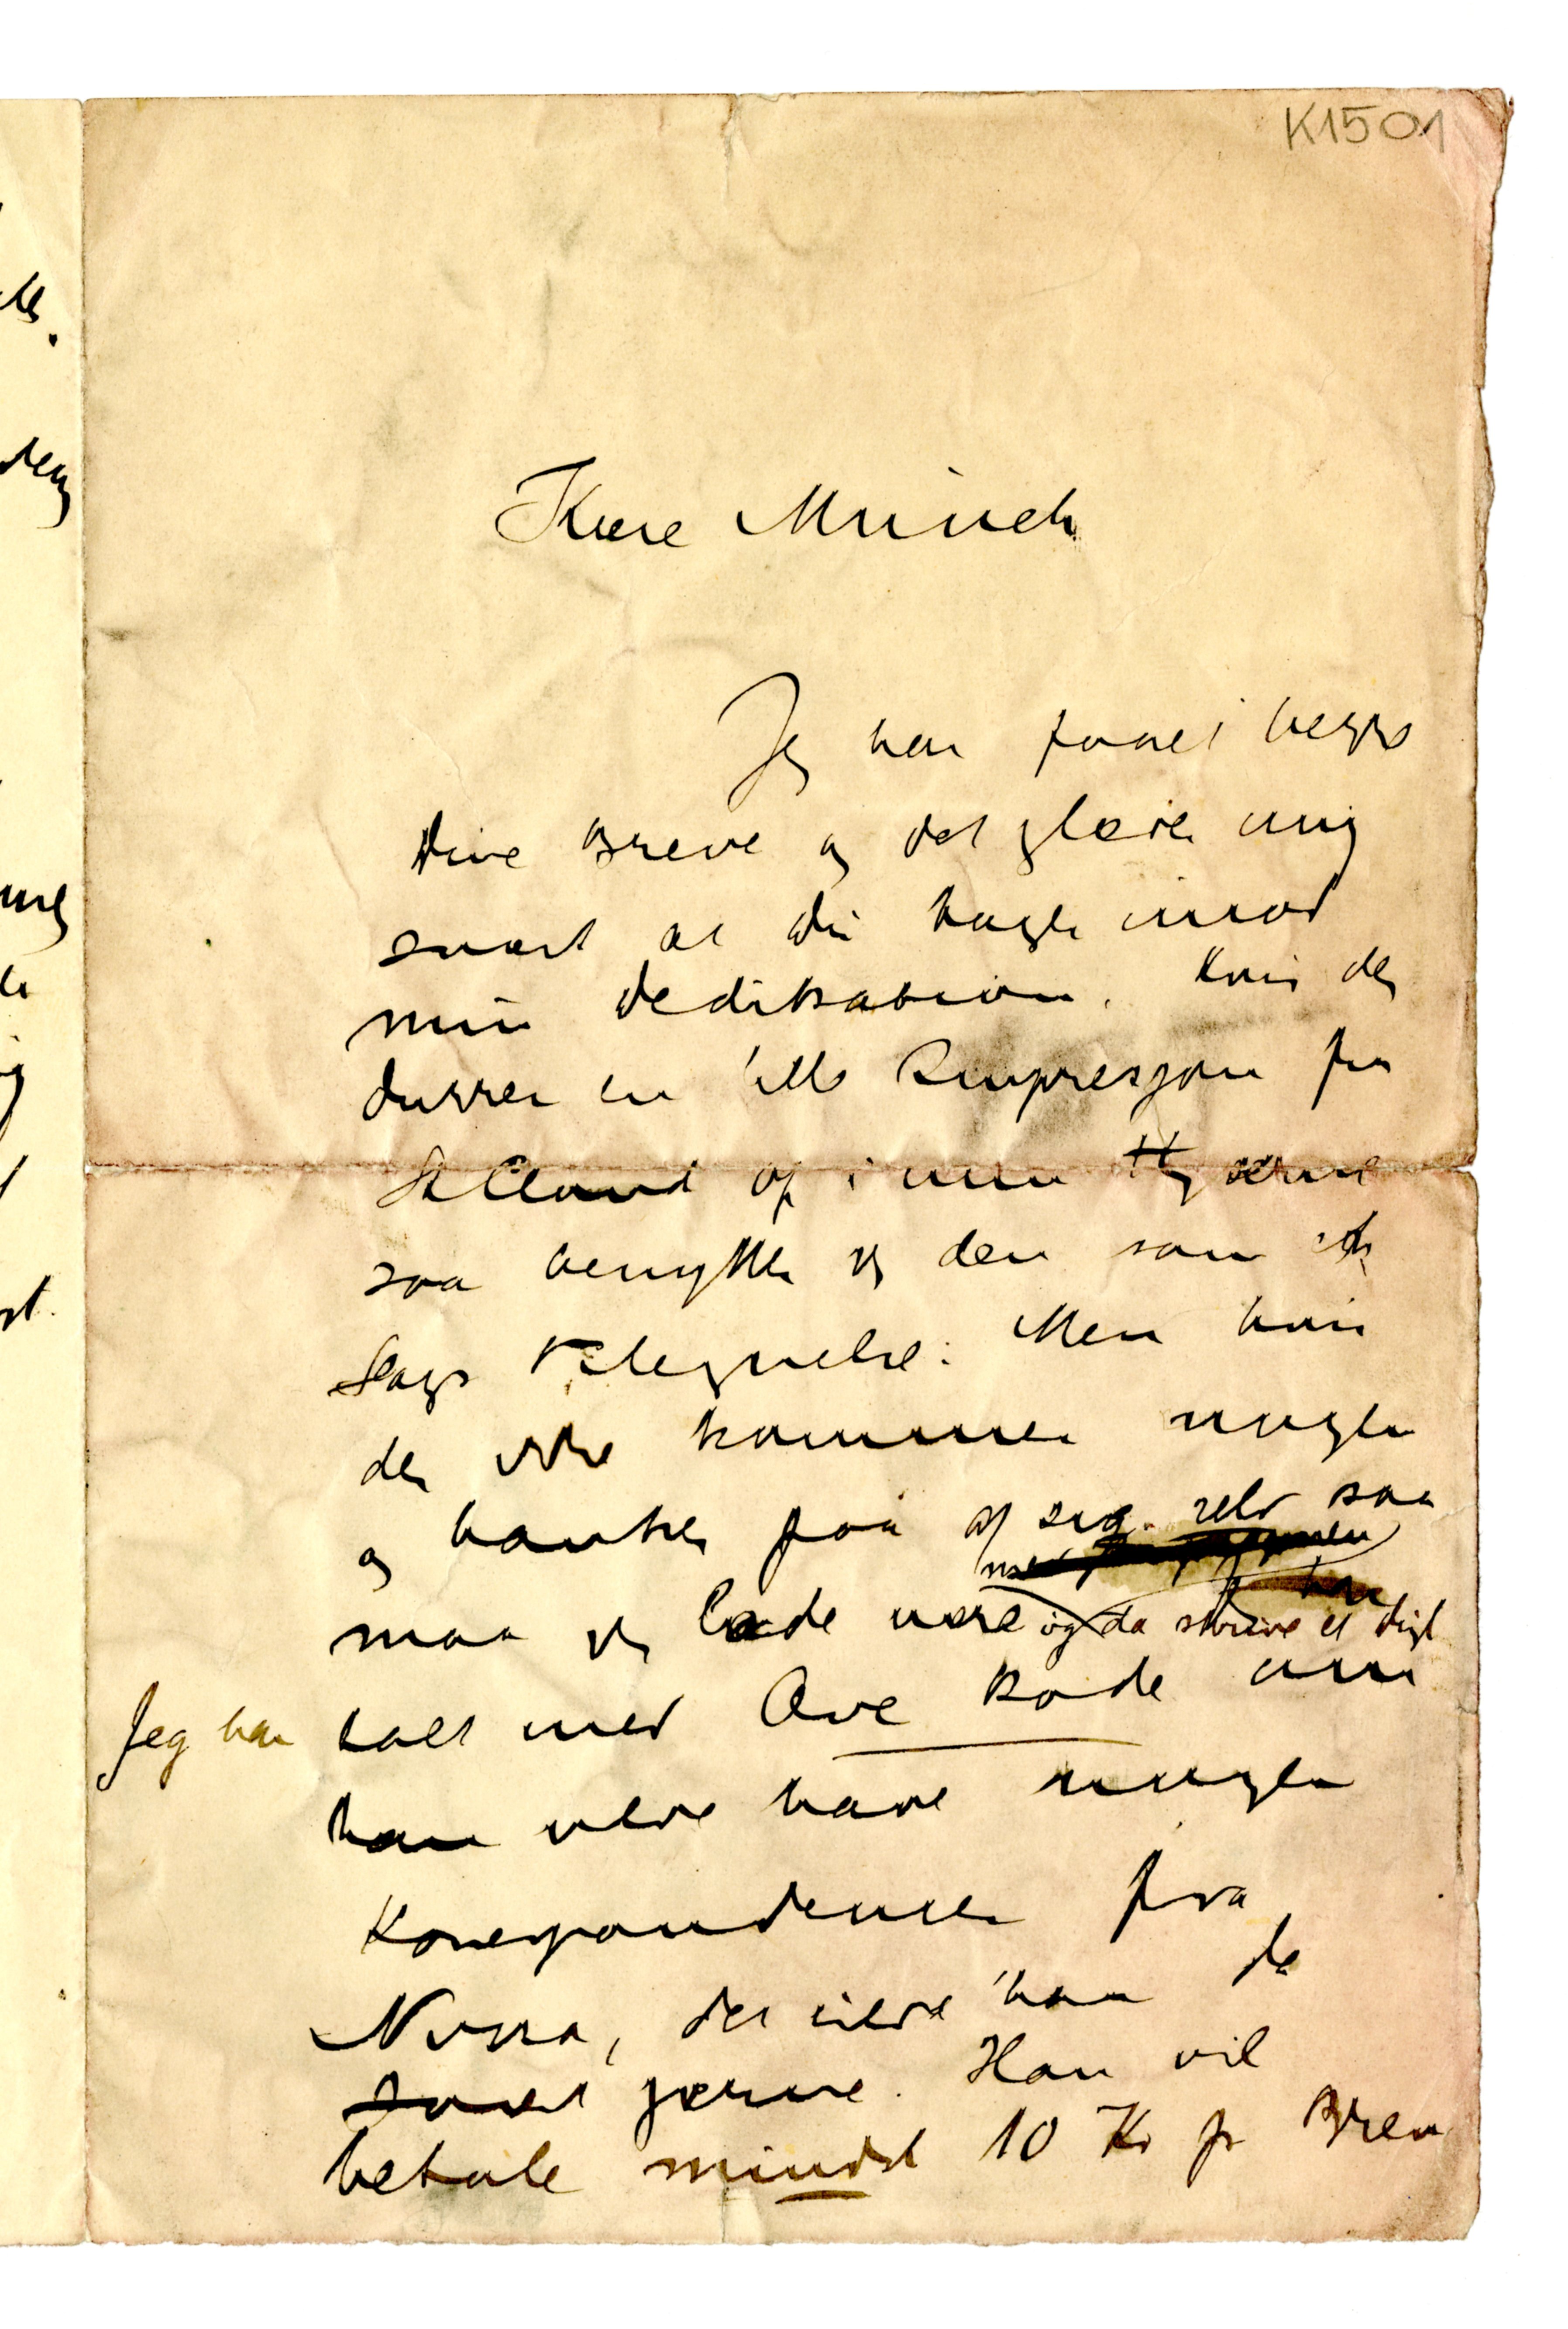 K1501
Kære Munch
Jeg har faaet begge
dine Breve og det glæder mig
svært at du tager imod
min Dedikation. Hvis der
dukker en lille Impresjon fra
St Cloud op i min Hjærne
saa benytter jeg den som et
Slags Tilegnelse. Men hvis
der ikke kommer nogen
og banker paa af sig selv saa
maa jeg lade være og da skrive et digt
Jeg har talt med Ove Rode om
han vilde have nogen
Korespondencer fra
Nizza, det vilde han da
svært gjerne. Han vil
betale mindst 10 Kr pr Brev